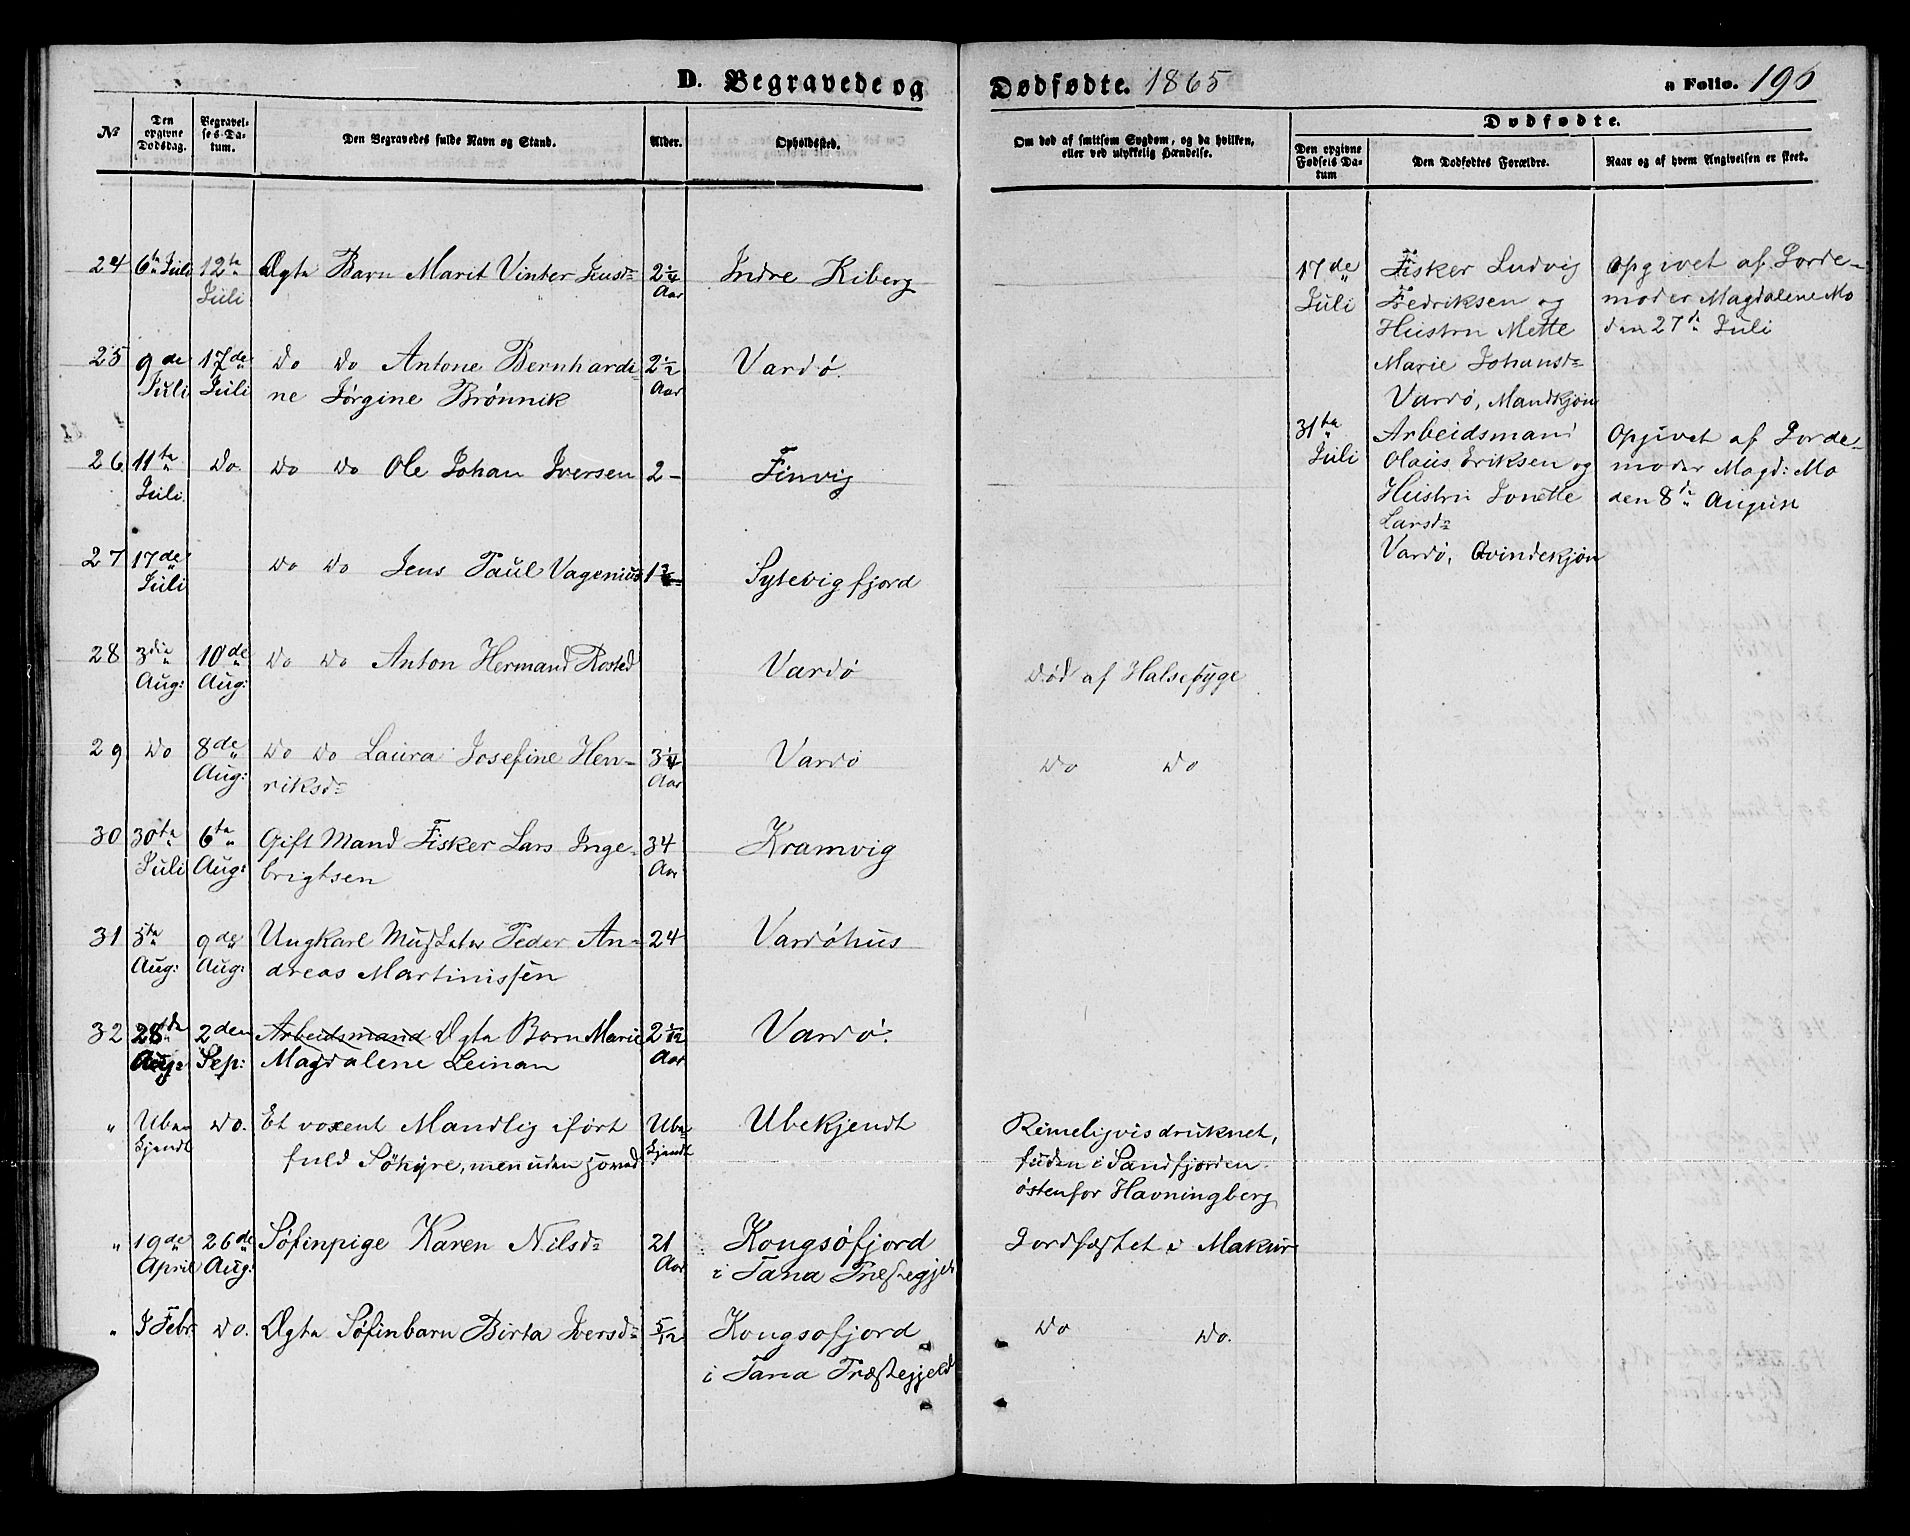 D. Begravede og Dødfødte. 1865 a Folio. 196
No
Den opgivne Dødsdag.
Begravelses-Datum.
Den Begravedes fulde Navn og Stand.
Alder.
Opholdssted.
Om død af smitsom Sygdom, og da hvilken, eller ved ulykkelig Hændelse.
Dødfødte.
Den opgivne Fødsels Datum
Den Dødfødtes Forældre.
Naar og af hvem Angivelsen er skeet.
24 6te Juli 12te Juli Ægte Barn Marit Vinter Jensd. 2 1/4 Aar Indre Kiberg
25 9de Juli 17de Juli Do Do Antone Bernhardi-
ne Jørgine Brønnik 2 1/2 Aar Vardø.
26 11te Juli Do. Do Do Ole Johan Iversen 2 - Finvig
27 17de Juli Do Do Jens Paul Vagenius Sytevigfjord
28 3die Aug: 10de Aug: Do Do Anton Hermand Rosted Vardø Død af Halsesyge
29 Do 8de Aug: Do Do Laura Josefine Hen-
riksd. 3 1/4 Aar Vardø Do Do
30 30te Juli 6te Aug: Gift Mand Fisker Lars Inge-
brigtsen 34 Aar Kramvig
31 5te Aug: 9de Aug: Ungkarl Musketer Peder An-
dreas Martinissen 24 Vardøhus
32 28de Aug: 2den Sep: Arbeidsmand Ægte Barn Marie
Magdalene Leinan 2 1/12 Aar Vardø.
" Ube-
kjendt Do. Et voxent Mandlig iført
fuld Søhyre, men uden hoved Ube-
kjendt Ubekjendt Rimeligvis druknet,
funden i Sandfjorden
østenfor Havningberg
" 19de April 26de Aug: Søfinpige Karen Nilsd. 21 Aar Kongsøfjord
i Tana Præstegjel Jordfæstet i Makur
" Febr. Do. Ægte Søfinbarn Birta Iversd. 5/12 Kongsøfjord
i Tana Præstegjeld Do Do.
17de Juli
Fisker Ludvig
Fredriksen og
Hustru Mette
Marie Johansd.
Vardø, Mandkjøn
Opgivet af Jorde-
moder Magdalene Mo
den 27de Juli
31te Juli
Arbeidsmand
Olaus Eriksen og
Hustru Jonette
Larsd.
Vardø, Qvindekjøn
Opgivet af Jorde-
moder Magd: Mo
den 8de August